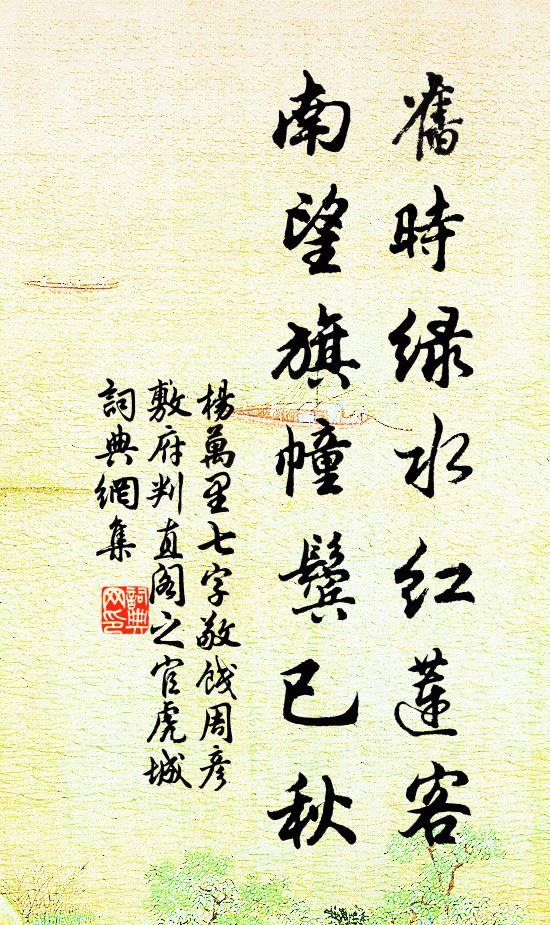 舊時绿水红蓮客
南望旗幢鬓已秋
楊萬里七字敬餞周彦
敷府判直阁之官虎城
詞典網集
詞典
网印